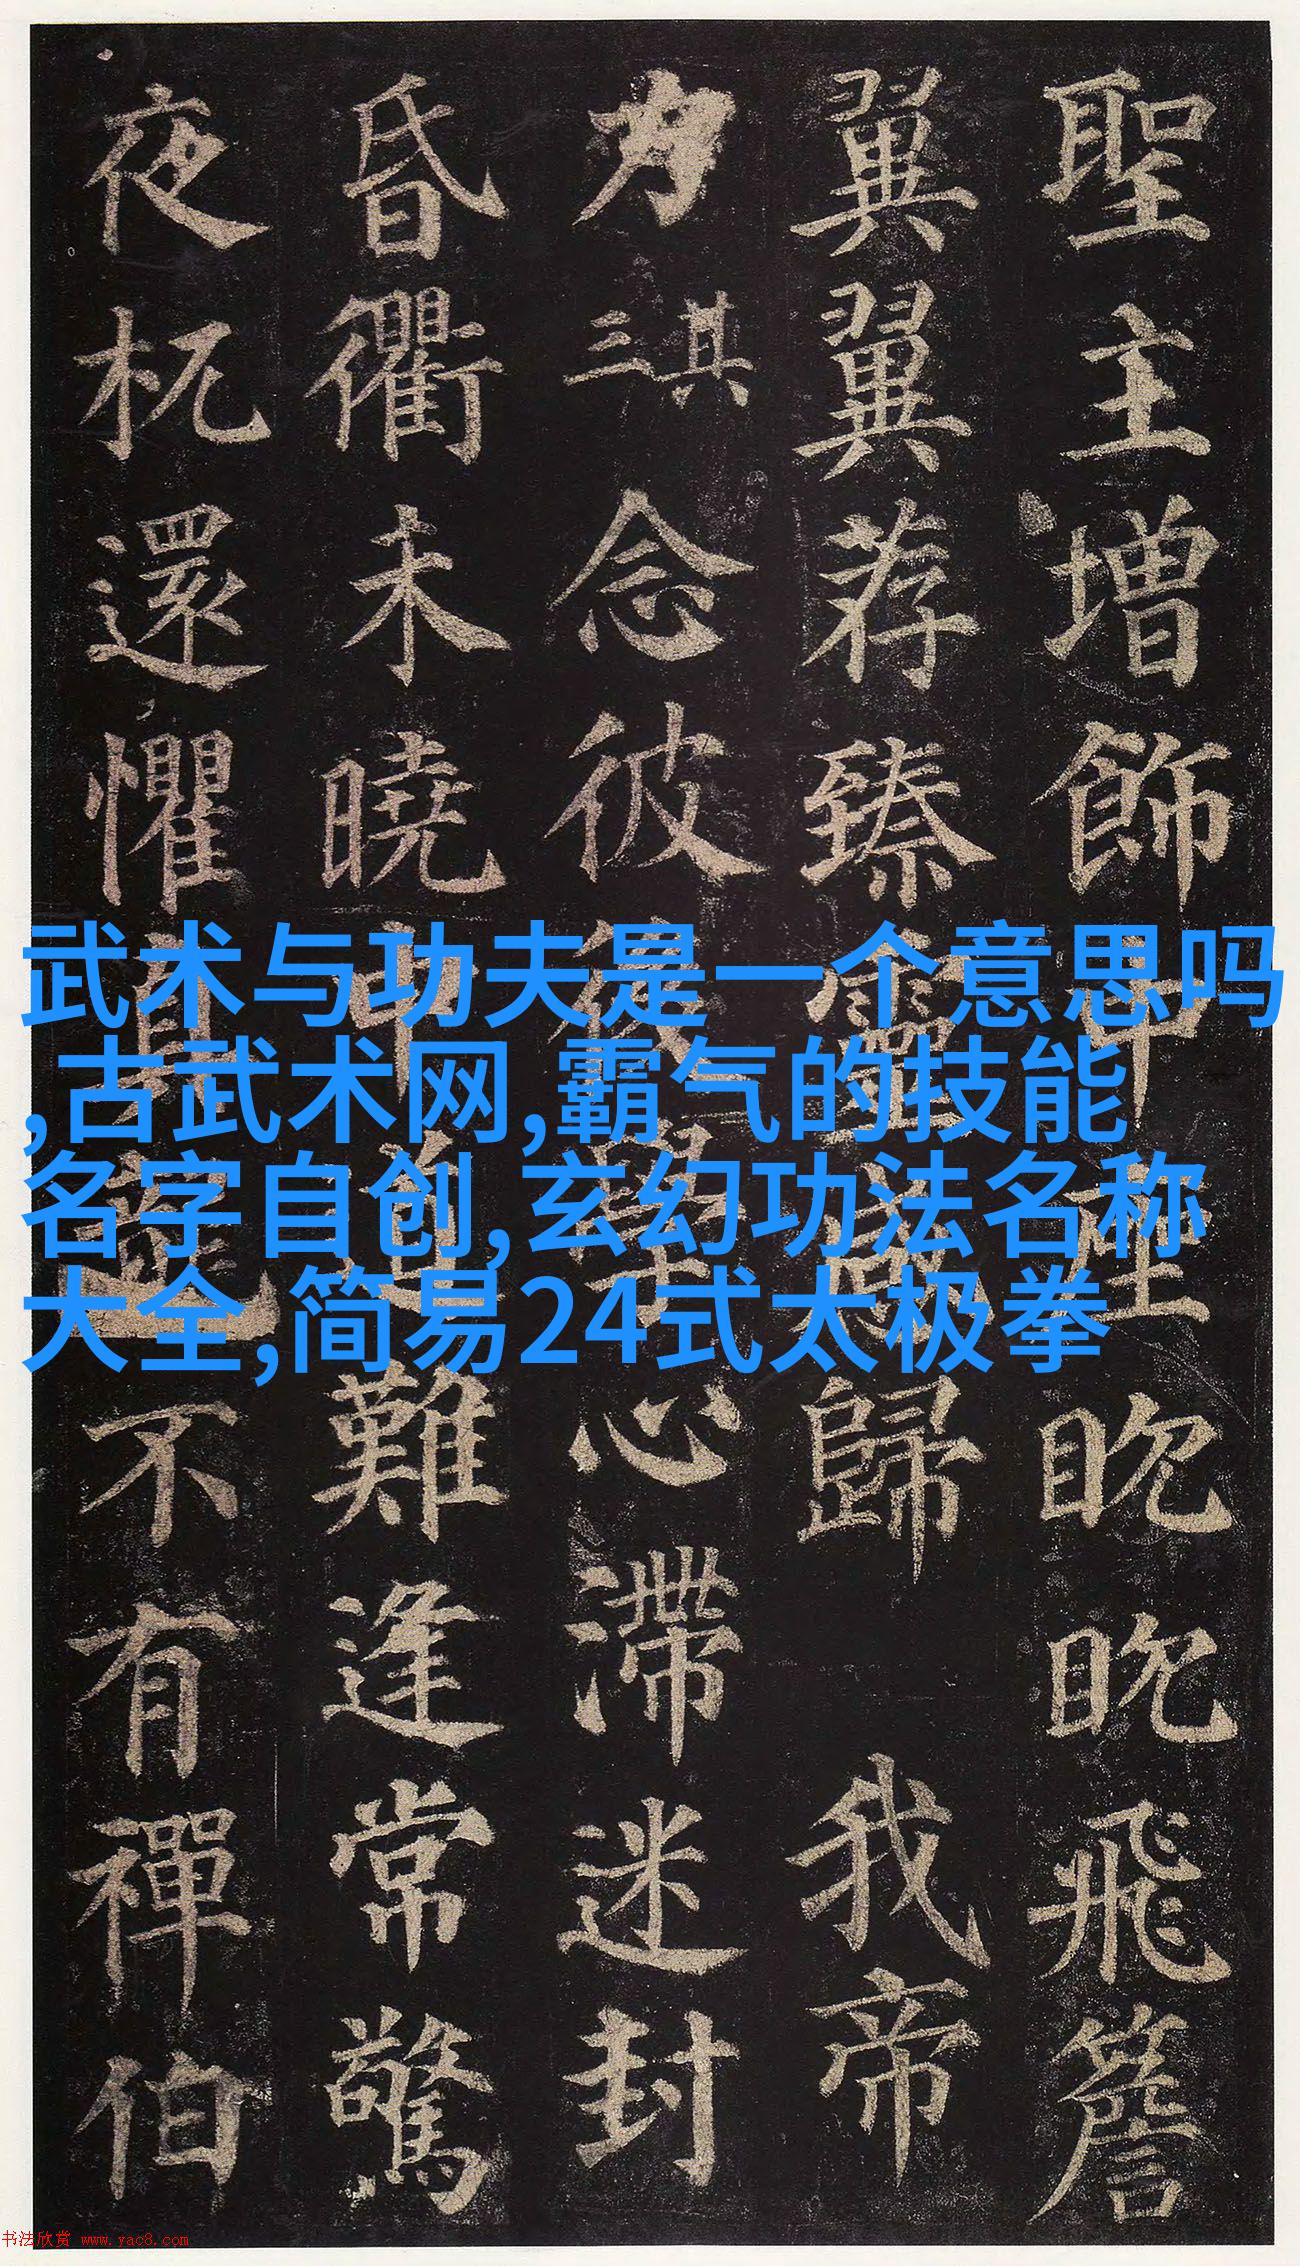 聖主增飾中眈眈飛簷
翼翼荐臻靈感歸我帝
力其三念彼後學心滯迷封
昏衢未曉中道難逢常驚
夜杌還懼真龍不有禪伯
武术与功夫是一个意思吗
,古武术网,霸气的技能
名字自创,玄幻功法名称
大全,简易24式太极拳
书法欣赏 www.yac8.com